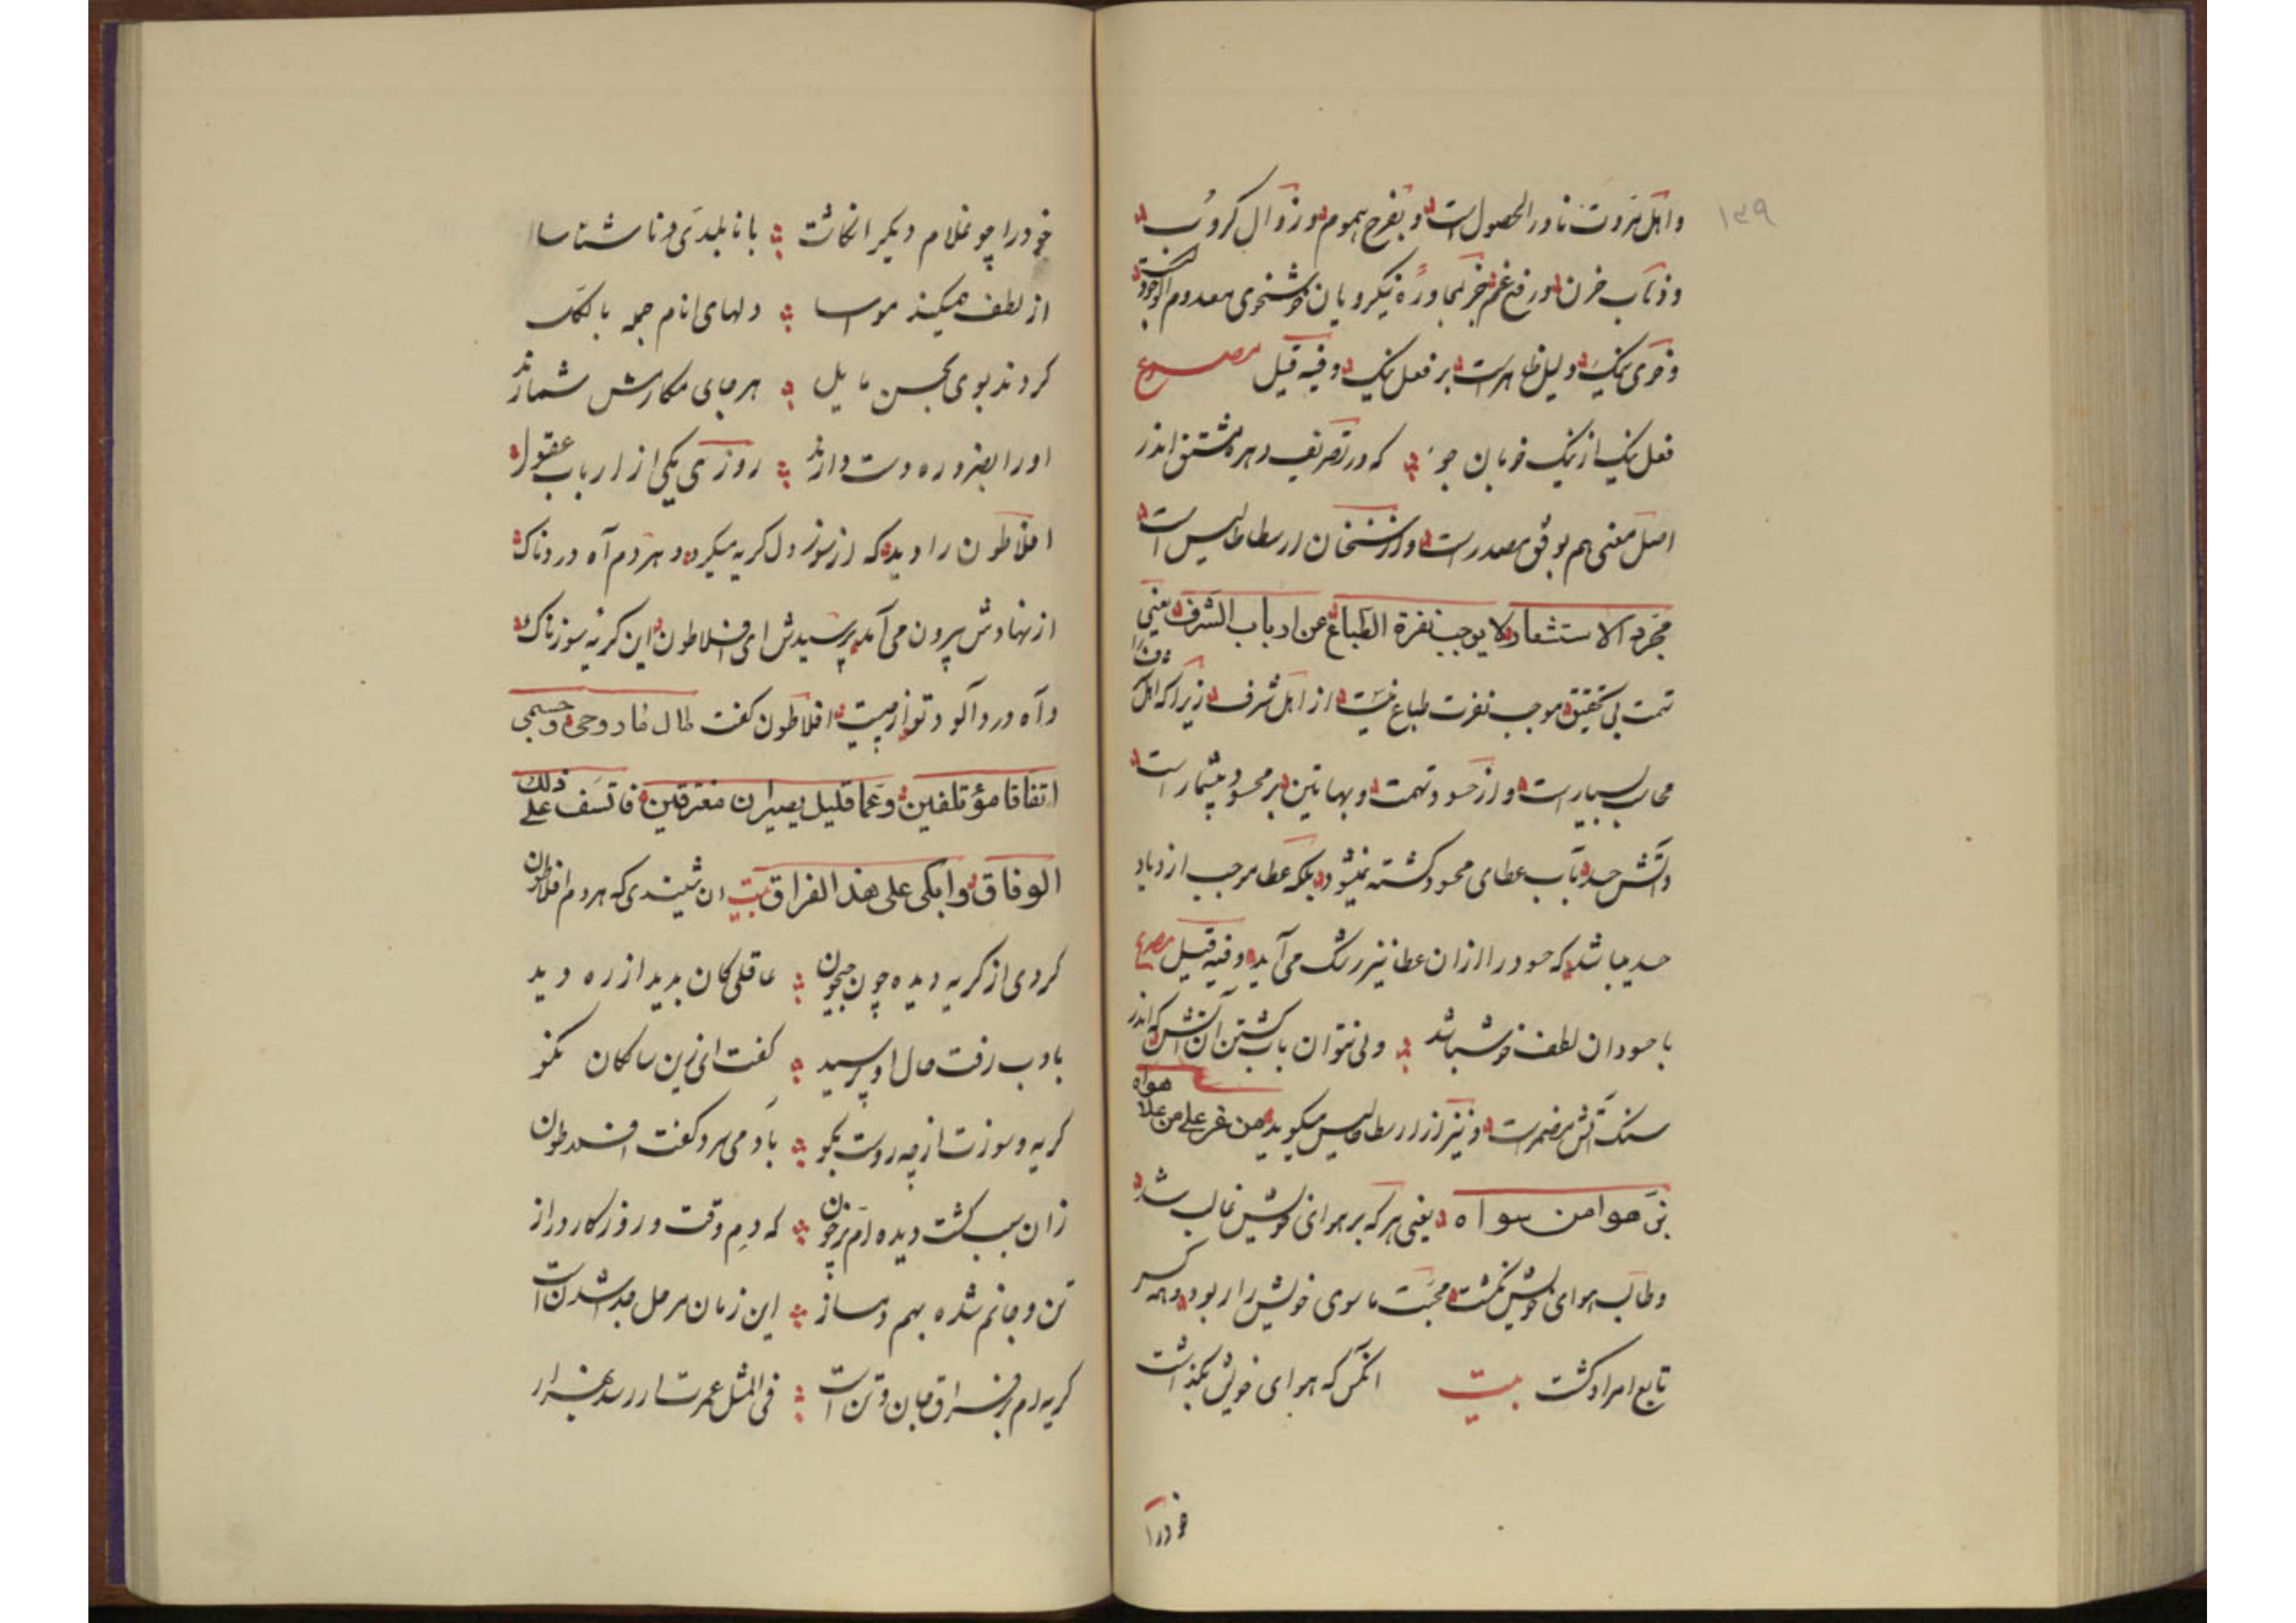 ۱۳۹
واهل ثروت نادر الحصول است و بتفرح هموم و زوال کروب
وذهاب حزن و رفع غم جز بمجاورهٔ نیکرویان خوشخوی معدوم الوجود
وخوی نیک دلیل ظاهر است بر فعل نیک وفیه قیل مصرع
فعل نیک از نیک خویان جو که در تصریف دهر مشتق اندر
اصل معنی هم بوفق مصدر است واز سخنان ارسطاطالیس است
مجرد الاستشعار لا یوجب نفرة الطباع عن ارباب الشرف یعنی
تهمت بی تحقیق موجب نفرت طباع نیست از اهل شرف زیرا که اهل
محاسن بسیار است و از حسود تهمت و بهاتین بر محسود بیشمار است
وآتش حسد بآب عطای محسود کشته نمیشود بلکه عطا موجب ازدیاد
حسد میباشد که حسود را ازان عطا نیز رشک می آید وفیه قیل مصرع
با حسودان لطف خوش باشد ولی نتوان بآب کشتن آن آتش که اندر
سنک آتش مضمر است و نیز از ارسطاطالیس میکوید من غر علی من علا هواه
نی هوا من سواه یعنی هر که بر هوای خویش غالب شد
وطالب هوای خویش نکشت محبت ماسوی خویش را ربود وهمه کس
تابع امر او کشت بیت انکس که هوای خویش بکذاشت
خودرا
خودرا چو غلام دیکر انکاشت با نابلدی و ناشناسا
از لطف همیکند مواسا دلهای انام جمله بالکل
کردند بوی بحسن مایل هر جای مکارمش شمارند
اورا بضروره دوست دارند روزی یکی از ارباب عقول
افلاطون را دید که از سوز دل کریه میکرد و هردم آه دردناک
از نهادش بیرون می آمد پرسیدش ای افلاطون این کریه سوزناک
وآه درد آلود تو از چیست افلاطون کفت طال ما روحی وجسمی
اتفاقا مؤتلفین وعما قلیل یصیران مفترقین فاتسف علی ذلک
الوفاق وابکی علی هذا الفراق بیت ان شنیدی که هردم افلاطون
کردی از کریه دیده چون جیحون عاقلی کان بدید از ره دید
بادب رفت حال او پرسید کفت ای زین سالکان نکو
کریه وسوزت از چه روست بکو باد می سرد کفت افلاطون
زان سبب کشت دیده ام پر خون که دم وقت و روزکار دراز
تن وجانم شده بهم دمساز این زمان سر حل جدا شدن است
کریه ام بر فراق جان و تن است فی المثل عمرت ار رسد بهزار